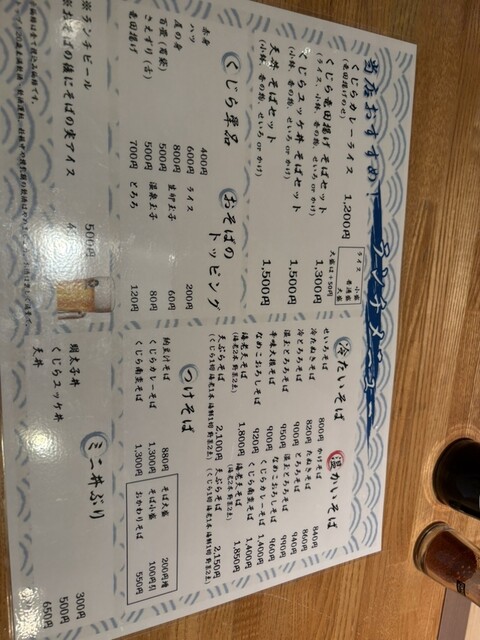 ランチメニュー
当店おすすめ！
くじらカレーライス 1,200円
(竜田揚げのせ)
ライス 小盛
普通盛
大盛
大盛は＋50円
くじら竜田揚げ そばセット 1,300円
(ライス、小鉢、香の物、せいろ or かけ)
くじらユッケ丼 そばセット 1,500円
(小鉢、香の物、せいろ or かけ)
天丼 そばセット 1,500円
(小鉢、香の物、せいろ or かけ)
くじら単品
赤身 400円
ハツ 600円
尾の身 800円
百畳(胃袋) 500円
さえずり(舌) 500円
竜田揚げ 700円
おそばのトッピング
ライス 200円
生卵玉子 60円
温泉玉子 80円
とろろ 120円
※ランチビール 500円
※おそばの後にそばの実アイス
冷たいそば
せいろそば 800円
冷たぬきそば 820円
冷とろろそば 900円
温玉とろろそば 950円
辛味大根そば 900円
なめこおろしそば 920円
海老天そば 1,800円
(海老2本 野菜2点)
天ぷらそば 2,100円
(くじら1個 海老1本 海鮮1個 野菜2点)
温かいそば
かけそば 840円
たぬきそば 860円
とろろそば 940円
温玉とろろそば 990円
なめこおろしそば 960円
くじらカレーそば 1,400円
くじら南蛮そば 1,400円
海老天そば 1,850円
(海老2本 野菜2点)
天ぷらそば 2,150円
(くじら1個 海老1本 海鮮1個 野菜2点)
つけそば
納豆汁そば 880円
くじらカレーそば 1,300円
くじら南蛮そば 1,300円
そば大盛 200円増
そば小盛 100円引
おかわりそば 550円
ミニ丼ぶり
明太子丼 300円
くじらユッケ丼 500円
天丼 650円